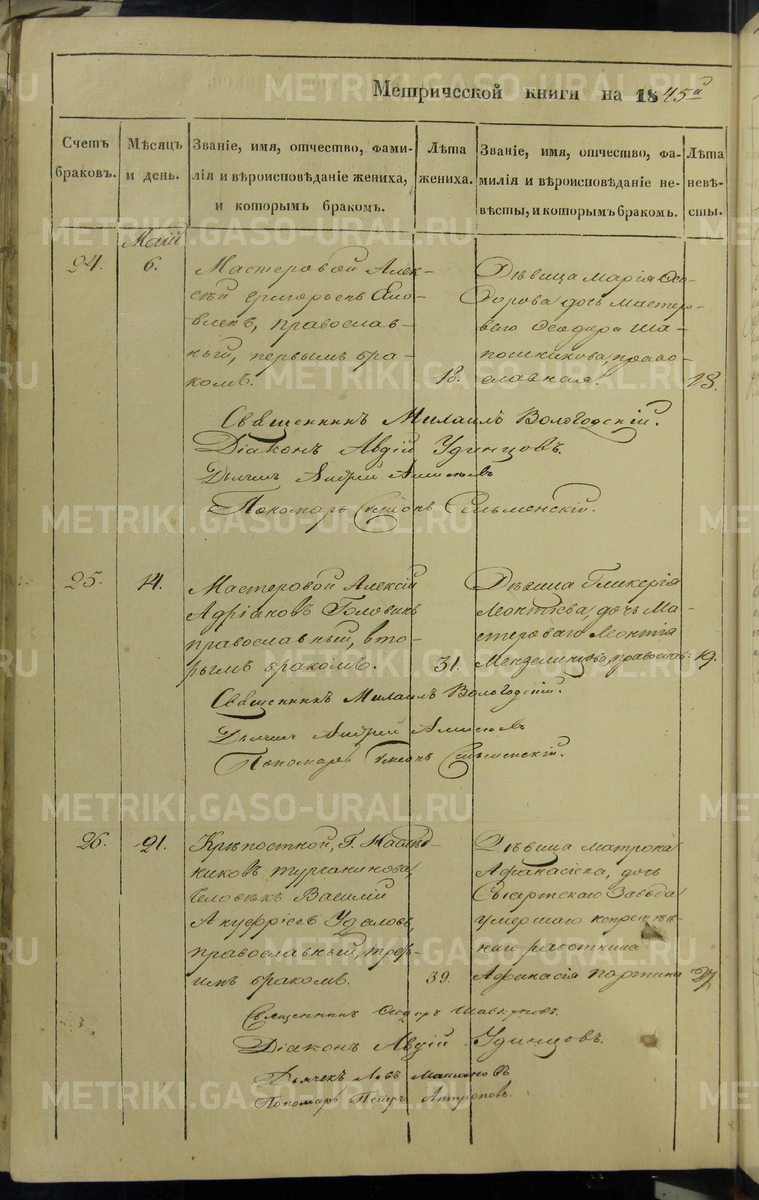 Метрической книги на 1845й
Счетъ браковъ.
Мѣсяцъ и день.
Званіе, имя, отчество, фамилія и вѣроисповѣданіе жениха, и которымъ бракомъ.
Лѣта жениха.
Званіе, имя, отчество, фамилія и вѣроисповѣданіе невѣсты, и которымъ бракомъ.
Лѣта невѣсты.
Маій
24.
6.
Мастеровой Алек-
сѣй Григорьевъ
православ-
ный, первымъ бра-
комъ.
18.
Дѣвица Марія Ѳео-
дорова, дочь мастеро-
ваго Ѳеодора Ша-
пошникова, право-
славная.
18.
Священникъ Михаилъ Вологодскій.
Діаконъ Авдій Удинцовъ.
Дьячекъ Андрей
Пономарь Симеонъ
25.
14.
Мастеровой Алексій
Адріановъ Головинъ
православный, вто-
рымъ бракомъ.
31.
Дѣвица Гликерія
Леонтіева, дочь Ма-
стероваго Леонтія
Мензелинцова, православ:
19.
Священникъ Михаилъ Вологодскій.
Дьячекъ Андрей
Пономарь Симеонъ
26.
21.
Крѣпостной, Г. Наслѣд-
никовъ Турчанинова
человѣкъ Василій
Ануфріевъ Удаловъ,
православный, треть-
имъ бракомъ.
39.
Дѣвица Матрона
Афанасіева, дочь
Сысертскаго Завода
умершаго непремѣн-
наго работника
Афанасія Портнова
27.
Священникъ Ѳеодоръ
Діаконъ Авдій Удинцовъ.
Дьячекъ Левъ
Пономарь Петръ Антроповъ.
METRIKI.GASO-URAL.RU